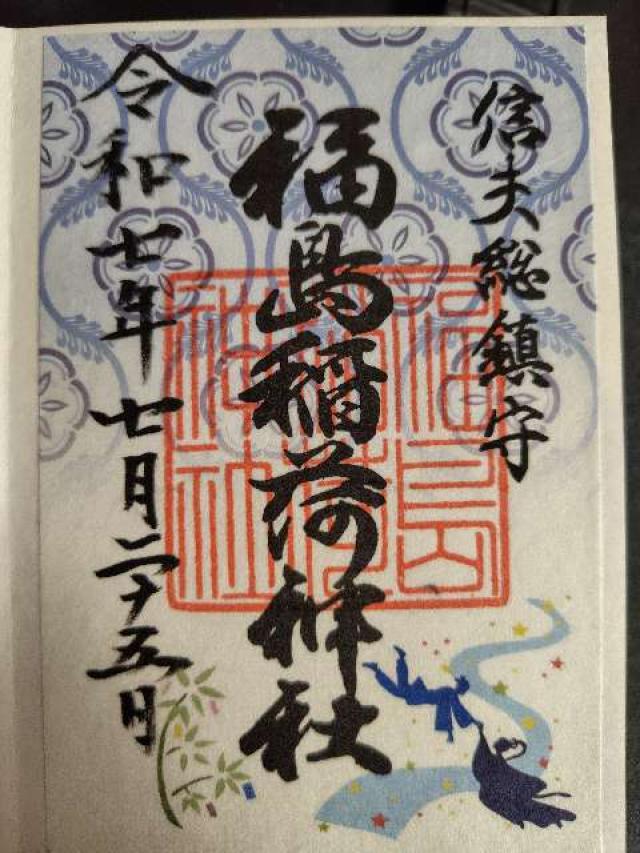 信夫総鎮守
福島稲荷神社
福島稲荷神社
令和七年七月二十五日